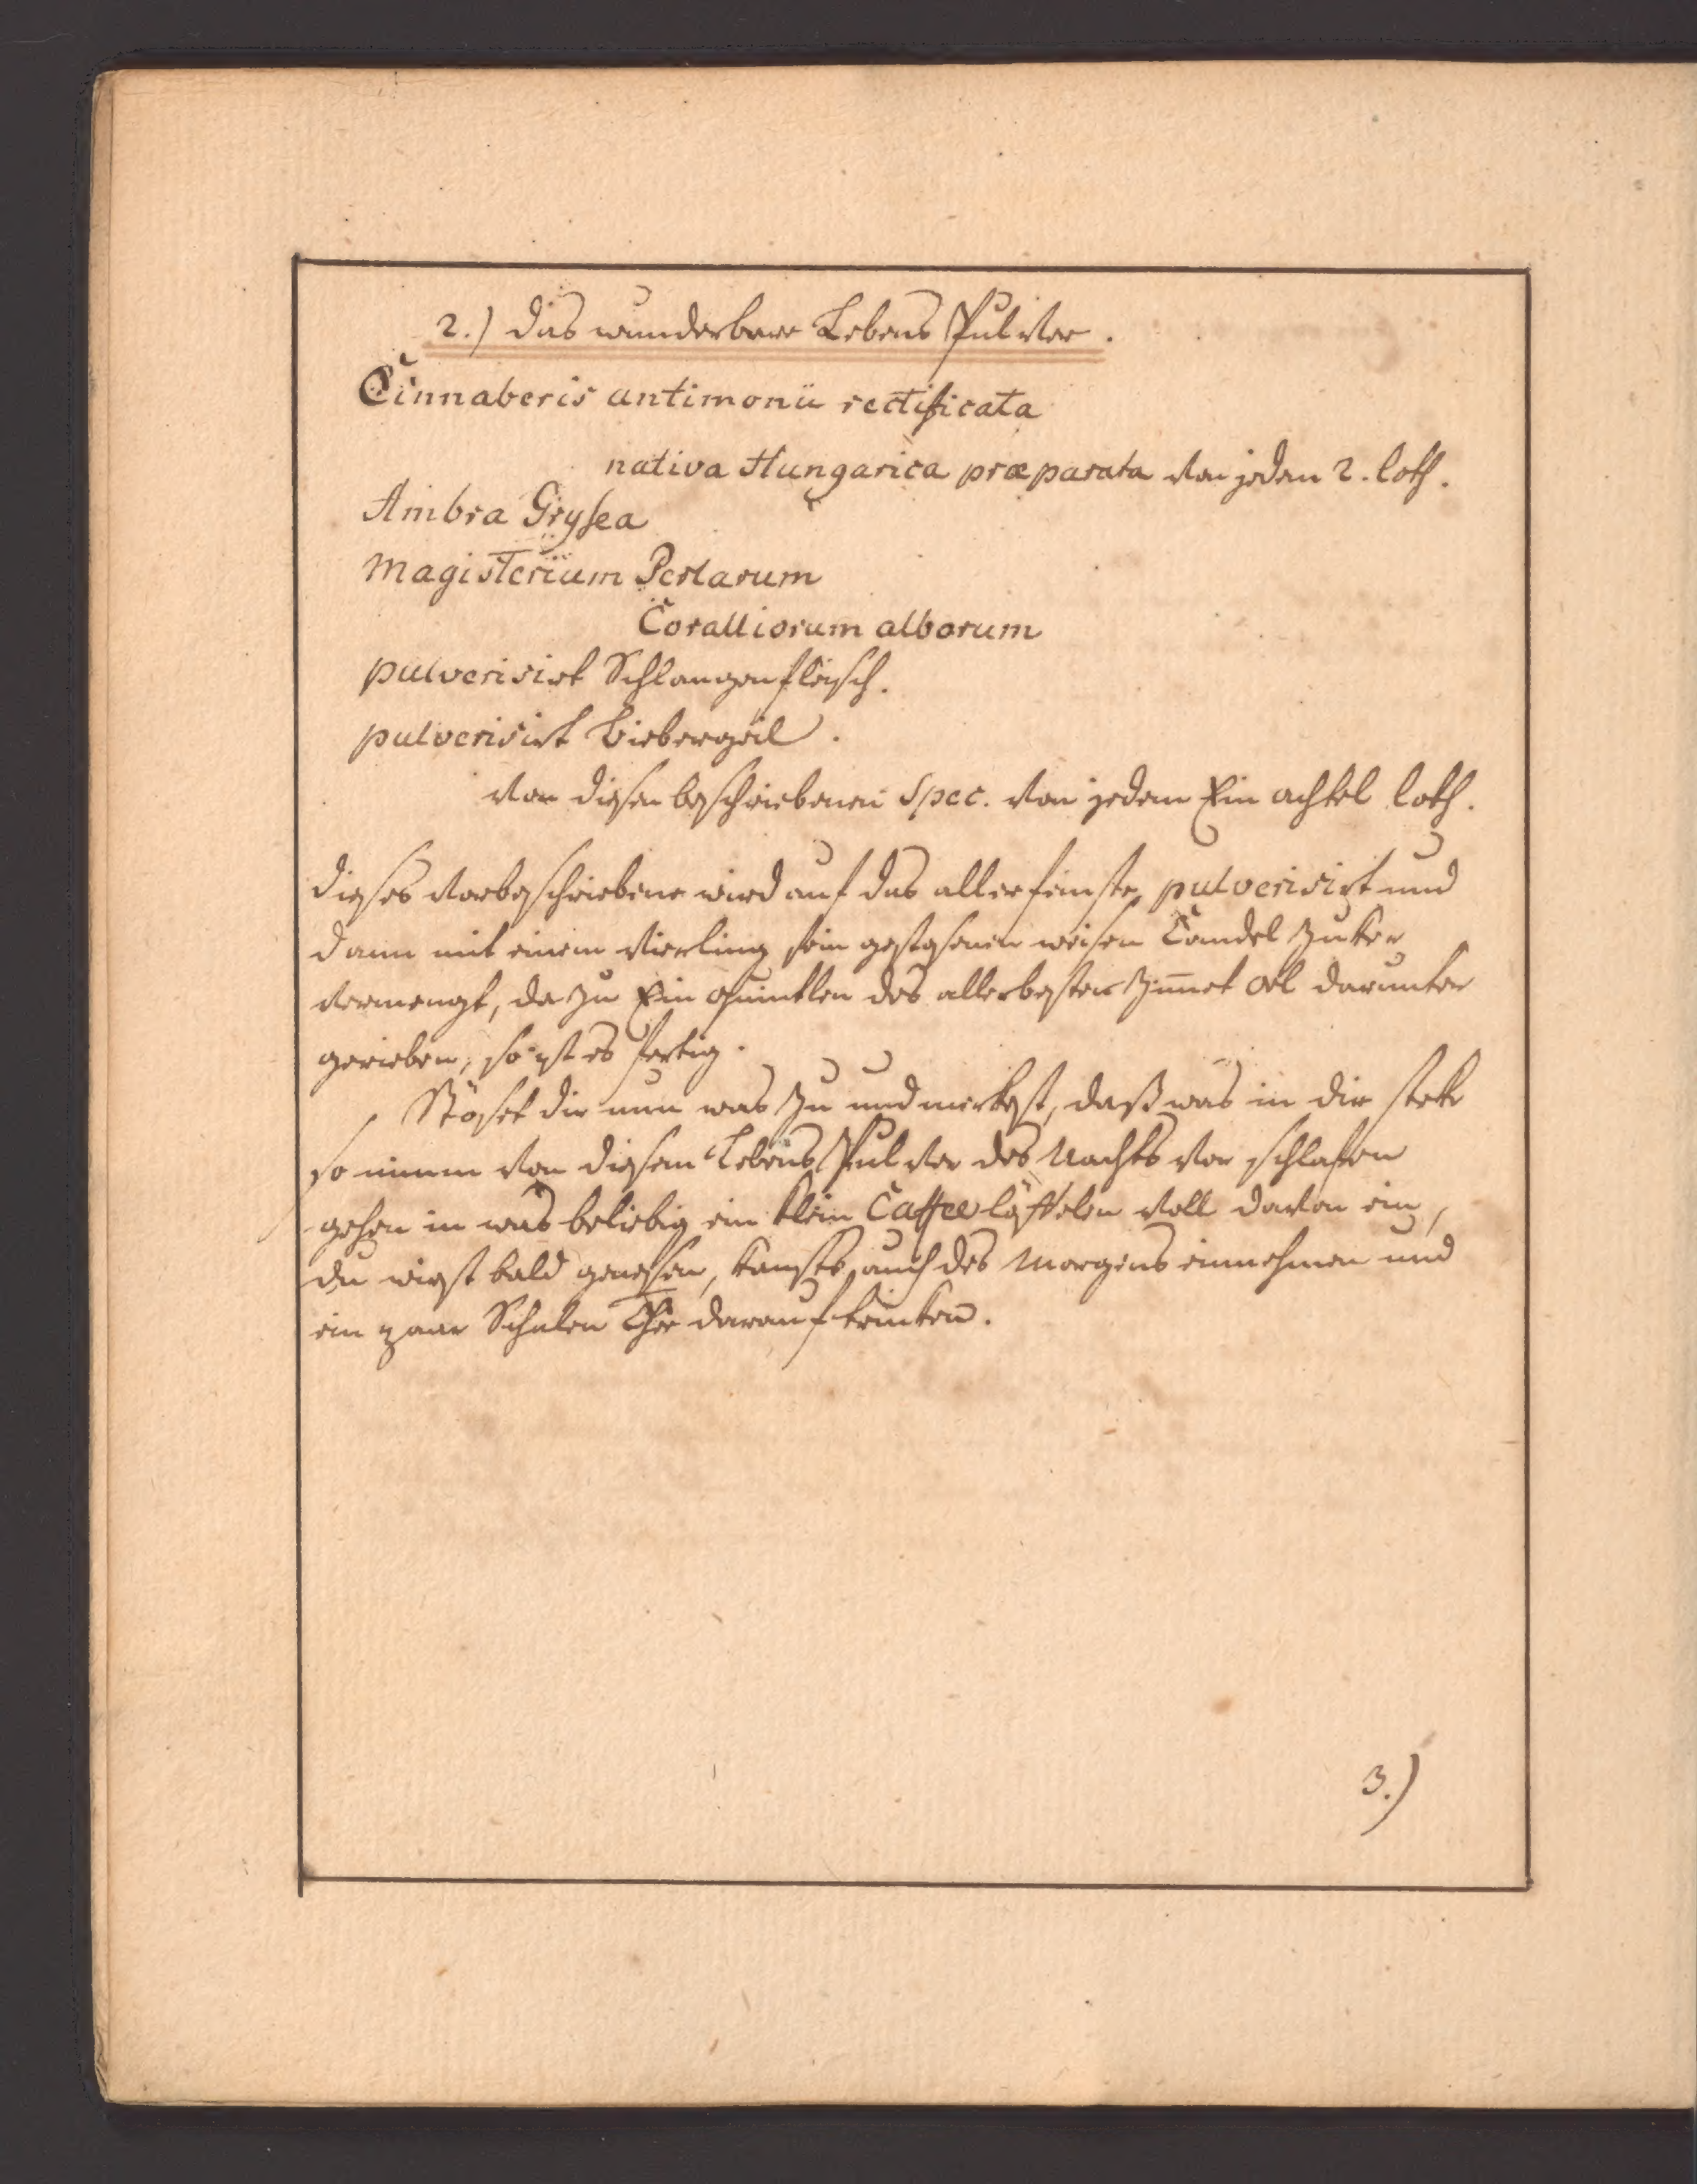 2.) das wunderbare Lebens Pulver.
Cinnaberis antimonii rectificata
nativa Hungarica præparata von jedem 2. loth.
Ambra Grysea
Magisterium Perlarum
Coralliorum alborum
pulverisirt Schlangenfleisch.
pulverisirt Biebergeil.
von diesen beschriebenen Spec. von jedem Ein achtel loth.
dieses vorbeschriebene wird auf das allerfeinste pulverisirt und
dann mit einem vierling fein gestosenen weisen Candel Zuker
vermengt, da zu Ein quintlen des allerbesten Zim̅et oel darunter
gerieben, so ist es fertig.
Stöset dir nun was zu und merkest, daß was in dir steke
so nimm von diesem Lebens Pulver des Nachts vor schlafen
gehen in was beliebig ein klein Caffee löffelen voll davon ein,
du wirst bald genesen, kansts auch des Morgens einnehmen und
ein paar Schalen Thee darauf trinken.
3.)